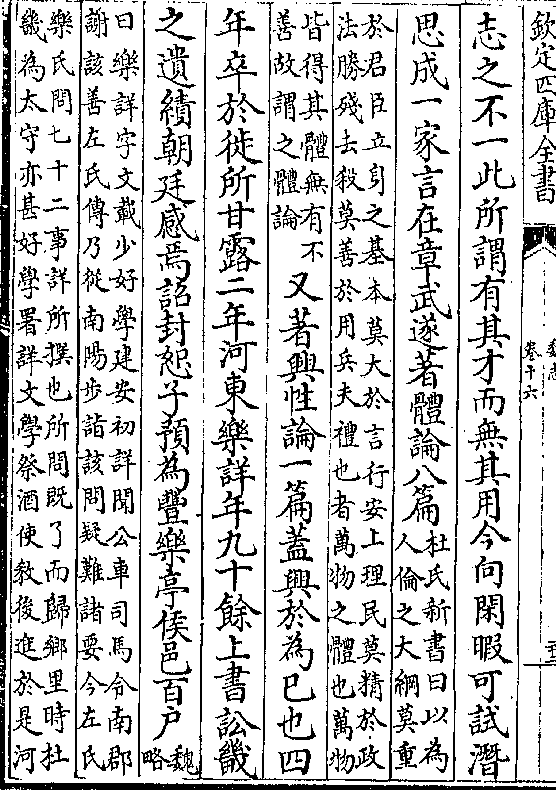 欽定四庫全書
魏志
卷十六
志之不一此所謂有其才而無其用今向閑暇可試潛
思成一家言在章武遂著體論八篇
杜氏新書曰以為
人倫之大綱莫重
於君臣立身之基本莫大於言行安上理民莫精於政
法勝殘去殺莫善於用兵夫禮也者萬物之體也萬物
皆得其體無有不
善故謂之體論
又著興性論一篇蓋興於為已也四
年卒於徙所甘露二年河東樂詳年九十餘上書訟畿
之遺績朝廷感焉詔封恕子預為豐樂亭侯邑百户
魏
略
曰樂詳字文載少好學建安初詳聞公車司馬令南郡
謝該善左氏傳乃從南陽步詣該問疑難諸要今左氏
樂氏問七十二事詳所撰也所問既了而歸鄉里時杜
畿為太守亦甚好學署詳文學祭酒使教後進於是河